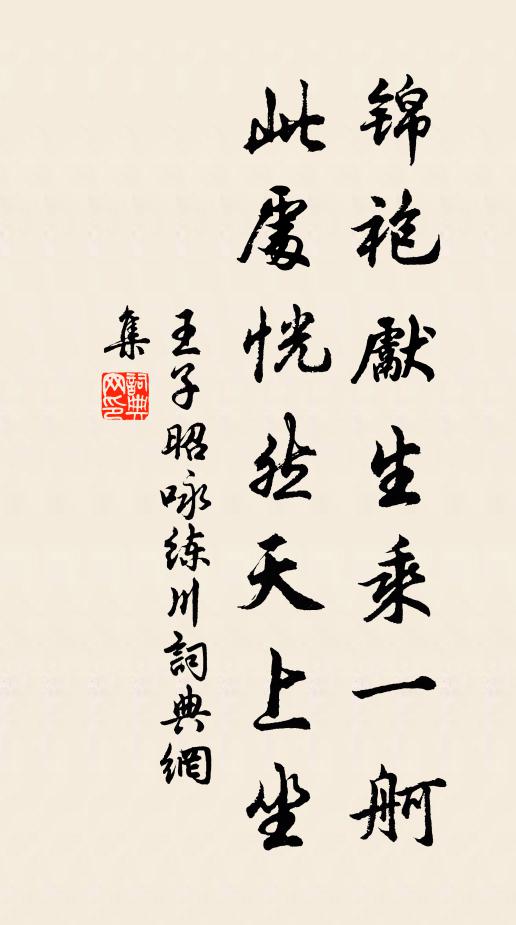 锦袍獻生乘一舸
此處恍然天上坐
王子昭咏练川詞典網
集
詞典网印